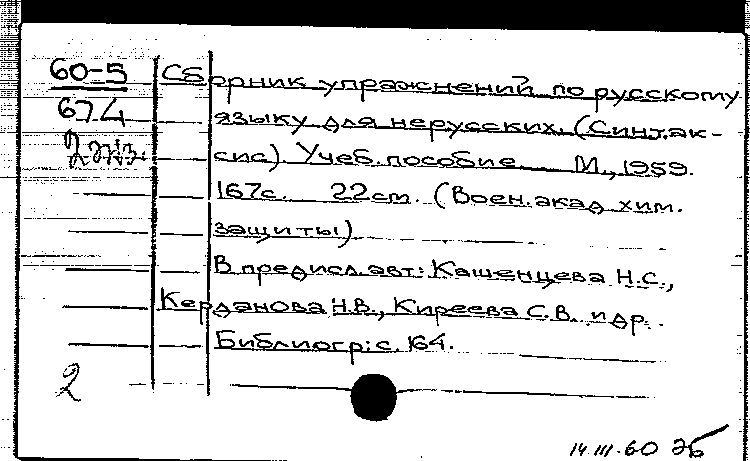 60-5 Сборник упражнений по русскому
67.4 языку для нерусских. (Синтак-
2 экз. сис). Учеб. пособие. М., 1959.
167с. 22см. (Воен. акад хим.
защиты)
В предисл. авт: Кашенцева Н.С.,
Керданова Н.В., Киреева С.В. и др.
Библиогр: с. 164.
2
14.III.60